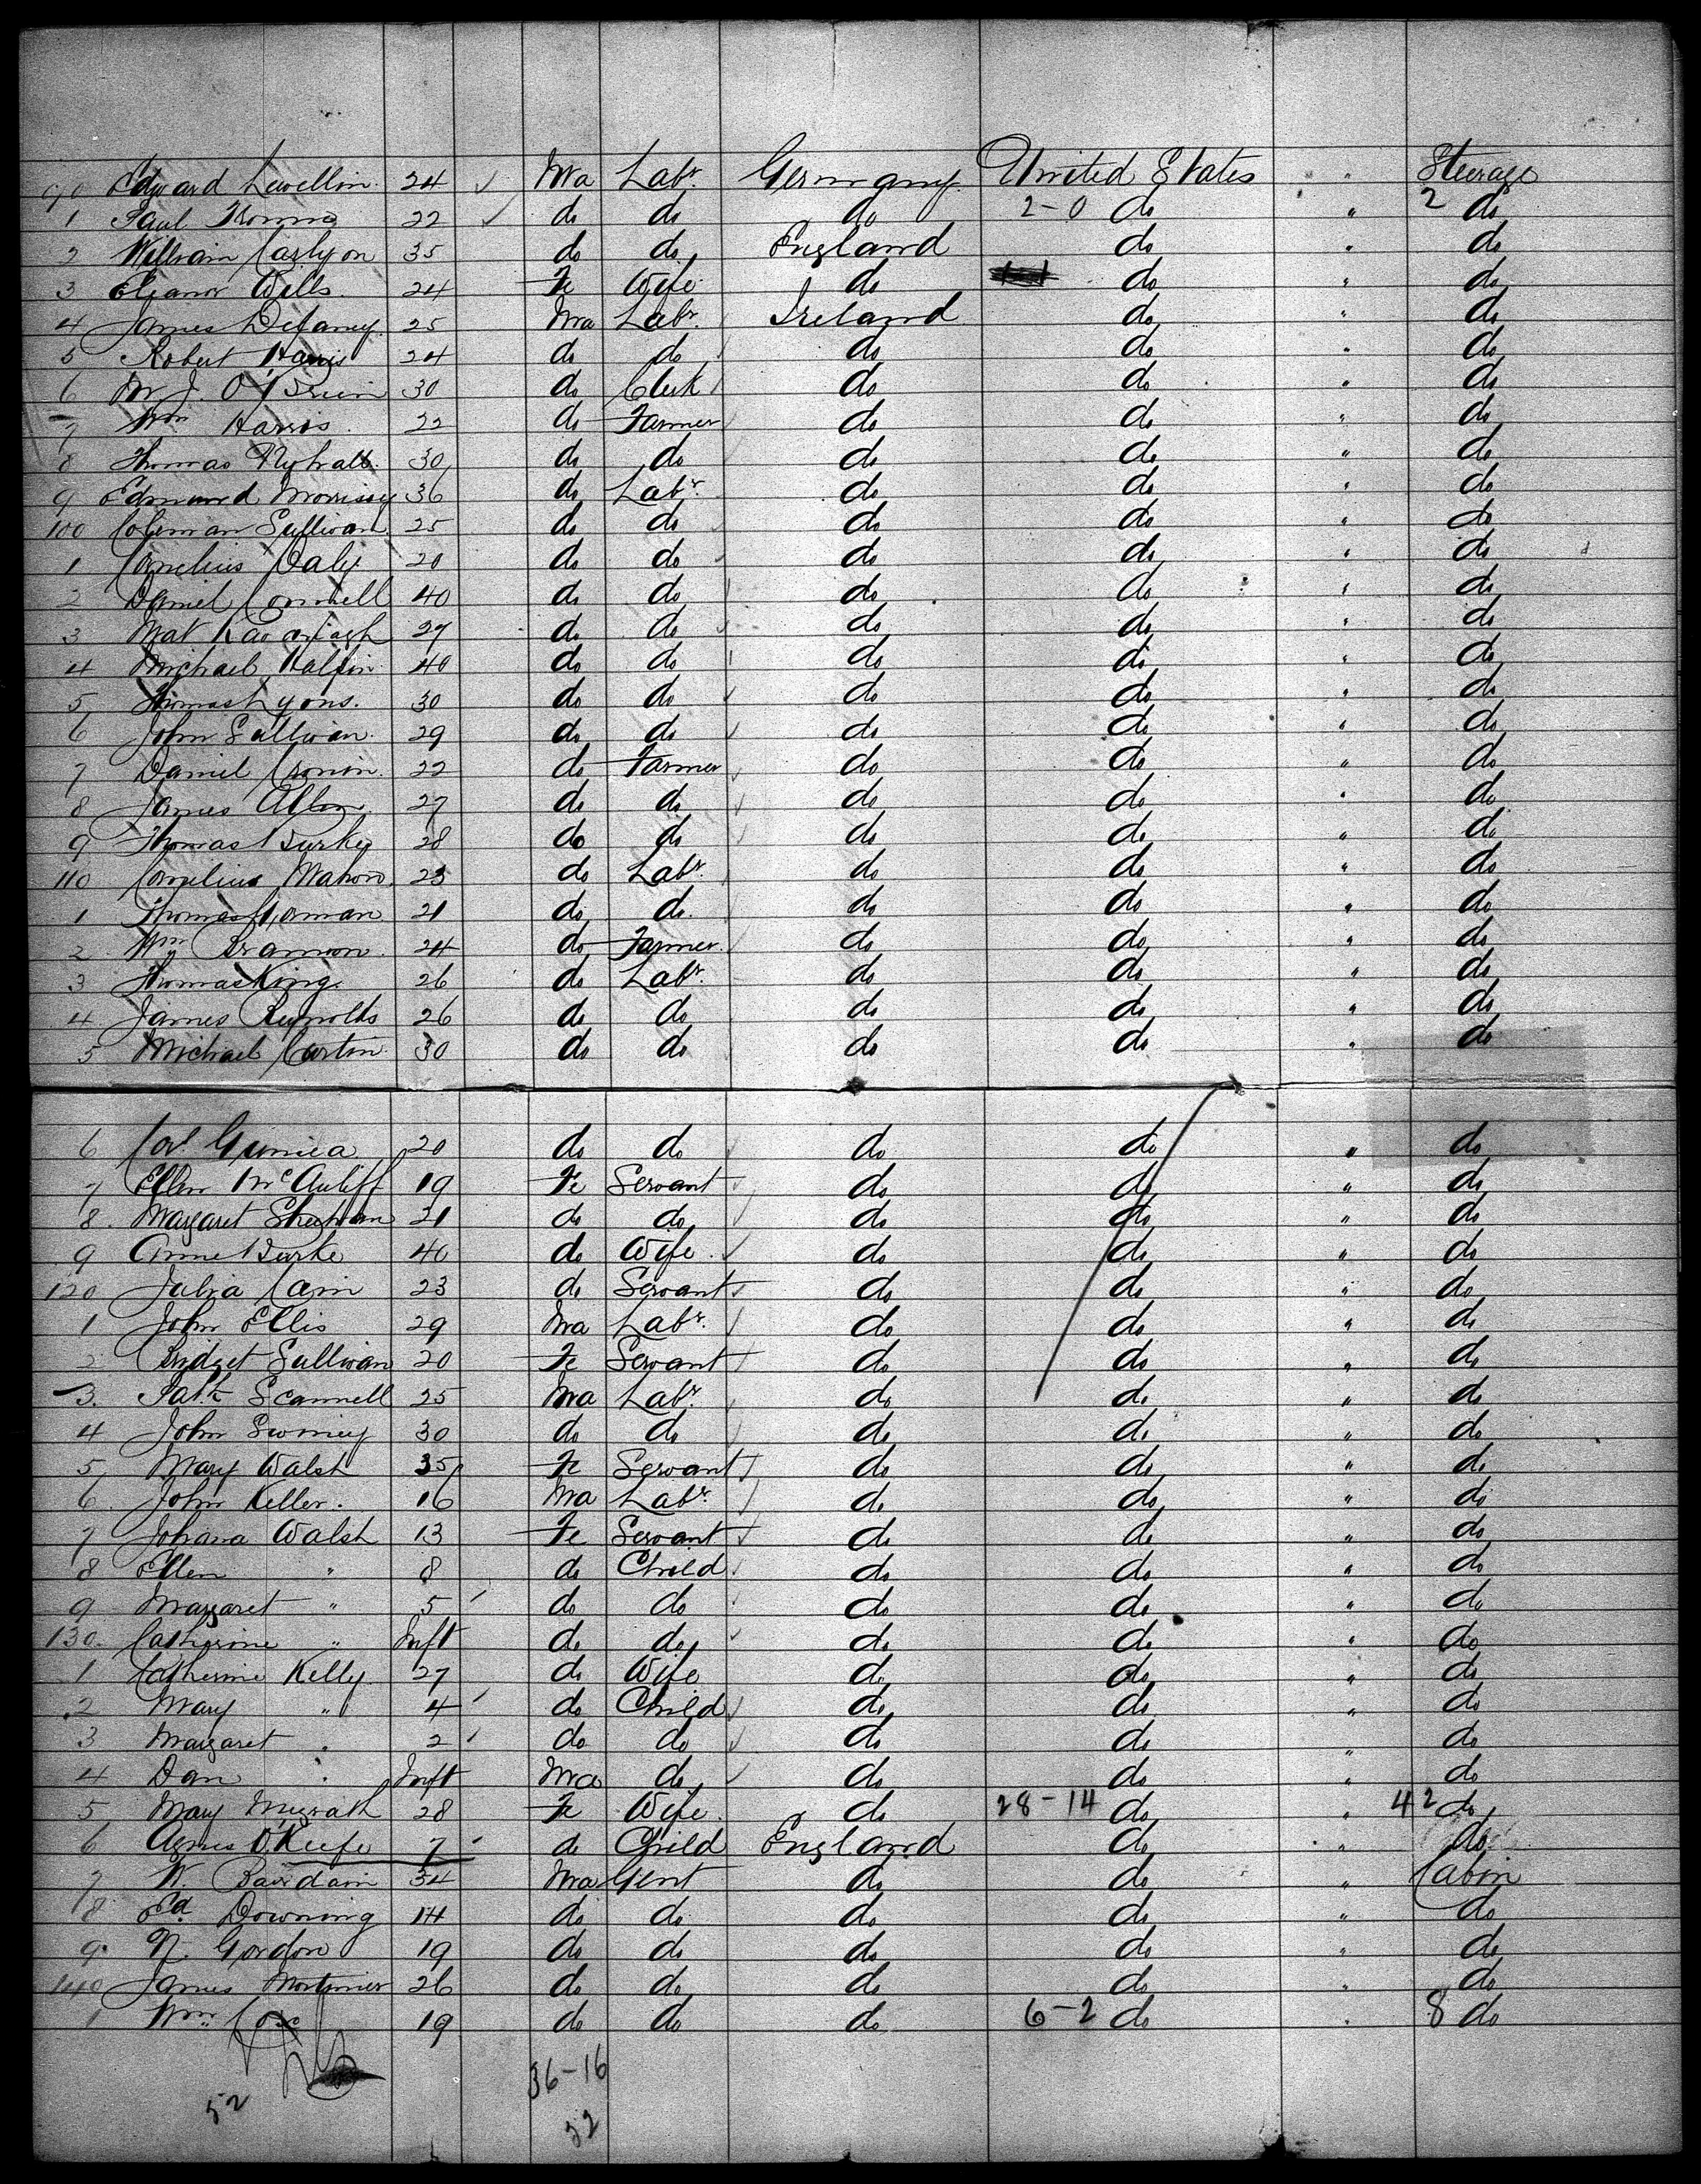 90 Edward Lewellin. 24 Ma Labr. Germany United States " Steerage
1 Paul 22 do do do 2-0 do " 2 do
2 William Carlyon 35 do do England do " do
3 Eleanor Wills. 24 Fe Wife do do " do
4 James Delaney. 25 Ma Labr. Ireland do " do
5 Robert Harris 24 do do do do " do
6 M. J. O'Brien 30 do Clerk do do " do
7 Wm Harris. 22 do Farmer do do " do
8 Thomas 30 do do do do " do
9 Edmund Morrissy 36 do Labr. do do " do
100 Coleman Sullivan 25 do do do do " do
1 Cornelius Daly 20 do do do do " do
2 Daniel Connell 40 do do do do " do
3 Mat Kavanagh 27 do do do do " do
4 Michael Halpin. 40 do do do do " do
5 Thomas Lyons. 30 do do do do " do
6 John Sullivan. 29 do do do do " do
7 Daniel Cronin. 22 do Farmer do do " do
8 James 27 do do do do " do
9 Thomas Burke 28 do do do do " do
110 Cornelius Mahoro 23 do Labr. do do " do
1 Thomas 21 do do. do do " do
2 Wm Brannon. 24 do Farmer. do do " do
3 Thomas King. 26 do Labr. do do " do
4 James Reynolds 26 do do do do " do
5 Michael Curtin. 30 do do do do " do
6 Cor. 20 do do do do " do
7 Ellen McAuliff 19 Fe Servant do do " do
8. Margaret Sheehan 21 do do do do " do
9 Anne Burke 40 do Wife. do do " do
120 Julia Cain 23 do Servant do do " do
1 John Ellis 29 Ma Labr. do do " do
2 Bridget Sullivan 20 Fe Servant do do " do
3. Patk Scannell 25 Ma Labr. do do " do
4 John Swiney 30 do do do do " do
5 Mary Walsh 35 Fe Servant do do " do
6. John Keller. 16 Ma Labr. do do " do
7 Johana Walsh 13 Fe Servant do do " do
8 Ellen " 8 do Child do do " do
9 Margaret " 5 do do do do " do
130. Catherine " Inft do do do do " do
1 Catherine Kelly. 27 do Wife do do " do
2 Mary " 4 do Child do do " do
3 Margaret " 2 do do do do " do
4 Dan " Inft Ma do do do " do
5 Mary Mcgrath 28 Fe Wife. do 28-14 do " 42 do
6 Agnes O'Keefe 7 do Child England do " do
7 W. 34 Ma Gent do do " Cabin
8 Ed Downing 14 do do do do " do
9. N. Gordon 19 do do do do " do
140 James Mortimer 26 do do do do " do
1 Wm. Cox 19 do do do 6-2 do " 8 do
36-16
52
52